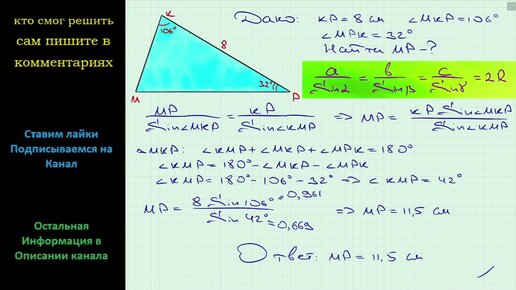 кто смог решить
сам пишите в
комментариях
Ставим лайки
Подписываемся на
Канал
Остальная
Информация в
Описании канала
K
106°
8
32°
M
P
Дано: KP = 8 см ∠MKP = 106°
∠MPK = 32°
Найти MP - ?
a/Sinα = b/Sinβ = c/Sinγ = 2R
MP/Sin∠MKP = KP/Sin∠KMP ⇒ MP = KP Sin∠MKP/Sin∠KMP
△MKP: ∠KMP + ∠MKP + ∠MPK = 180°
∠KMP = 180° - ∠MKP - ∠MPK
∠KMP = 180° - 106° - 32° ⇒ ∠KMP = 42°
MP = 8 Sin 106° = 0,961 / Sin 42° = 0,669 ⇒ MP = 11,5 см
Ответ: MP = 11,5 см